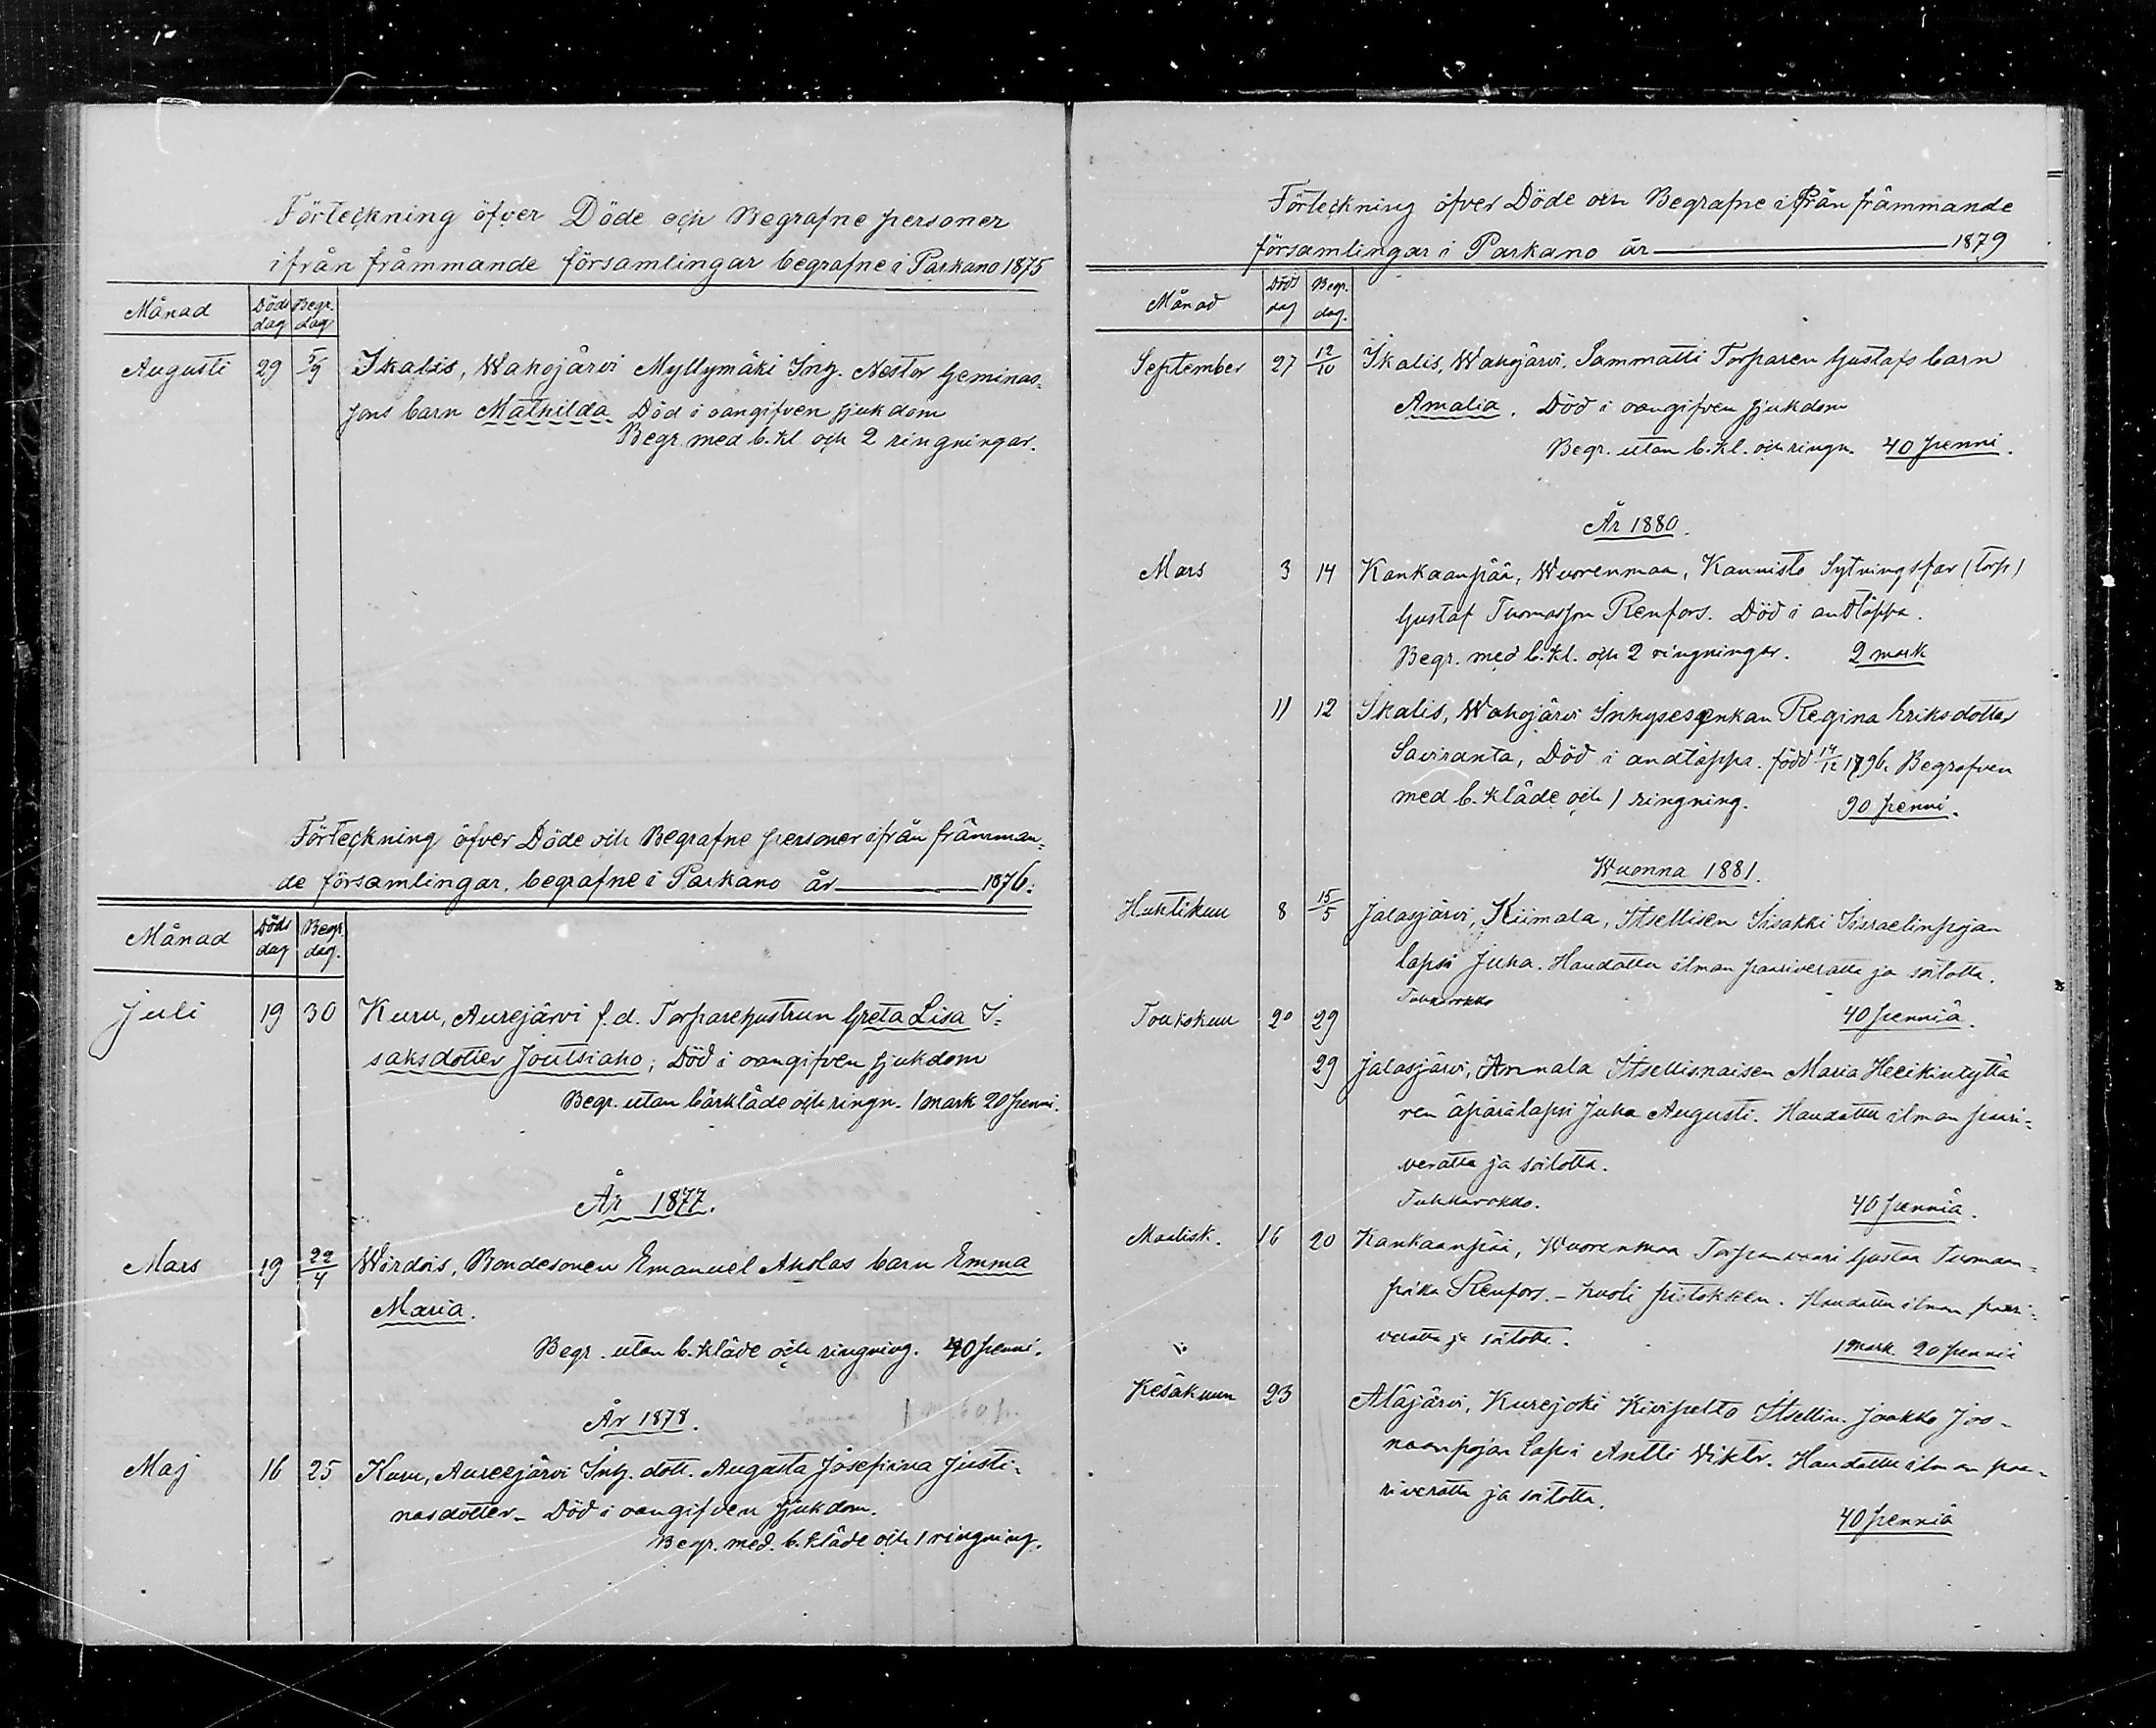 Förteckning öfver Döde och Begrafne personer
ifrån främmande församlingar begrafne i Parkano 1875
Månad Döds dag Begr. dag
Augusti 29 5/9 Ikalis, Wahojärvi Myllymäki Inh. Nestor Geminas-
sons barn Mathilda Död i oangifven sjukdom
Begr. med b. kl. och 2 ringningar.
Förteckning öfver Döde och Begrafne personer ifrån främman-
de församlingar, begrafne i Parkano år 1876.
Månad Döds dag Begr. dag.
Juli 19 30 Kuru, Aurejärvi f.d. Torparehustrun Greta Lisa I-
saksdotter Joutsiaho; Död i oangifven sjukdom
Begr. utan bårkläde och ringn. 1 mark 20 penni.
År 1877.
Mars 19 22/4 Wirdois, Bondesonen Emanuel Aholas barn Emma
Maria.
Begr. utan b. kläde och ringning. 40 penni.
År 1878.
Maj 16 25 Kuru, Aureejärvi Inh. dott. Augusta Josefina Justi-
nasdotter – Död i oangifven sjukdom.
Begr. med. b. kläde och 1 ringning.
Förteckning öfver Döde och Begrafne ifrån främmande
församlingar i Parkano år 1879
Månad Döds dag Begr. dag.
September 27 12/10 Ikalis, Wahojärvi. Sammatti Torparen Gustafs barn
Amalia. Död i oangifven sjukdom
Begr. utan b. kl. och ringn. 40 penni.
År 1880.
Mars 3 14 Kankaanpää, Wuorenmaa, Kannisto Sytningsfar (torp)
Gustaf Tuomasson Renfors. Död i andtäppa.
Begr. med b. kl. och 2 ringningar. 2 mark
11 12 Ikalis, Wahojärvi Inhysesenkan Regina Eriksdotter
Saviranta, Död i andtäppa. född 14/12 1796. Begrafven
med b. kläde och 1 ringning. 90 penni.
Wuonna 1881.
Huhtikuu 8 15/5 Jalasjärvi, Kiimala, Itsellisen Iisakki Iisraelinpojan
lapsi Juha. Haudattu ilman paariveratta ja soitotta.
Tuhkarokko
Toukokuu 20 29 40 penniä.
29 Jalasjärvi, Annala Itsellisnaisen Maria Heeikintyttä
ren äpärälapsi Juha Augusti. Haudattu ilman paari-
veratta ja soitotta.
Tuhkarokko. 40 penniä.
Maalisk. 16 20 Kankaanpää, Wuorenmaa Torpanvaari Gustaa Tuomaan-
poika Renfors. – kuoli pistokseen. Haudattu ilman paari-
veratta ja soitotta. 1 mark 20 penniä
Kesäkuun 23 Alajärvi, Kurejoki Kivipelto Itsellin. Jaakko Joo-
naanpojan lapsi Antti Wiktor. Haudattu ilman paa-
riveratta ja soitotta.
40 penniä